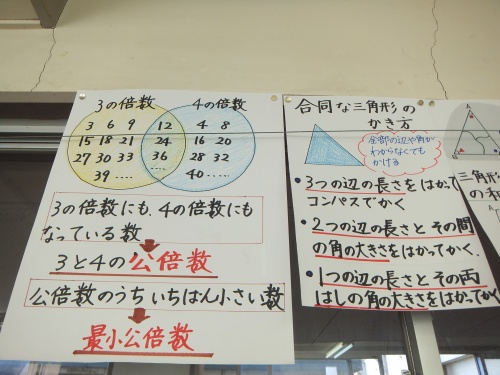 3の倍数 4の倍数
3 6 9 12 4 8
15 18 21 24 16 20
27 30 33 36 28 32
39 ..... 40 .....
3の倍数にも、4の倍数にも
なっている数
3と4の公倍数
公倍数のうちいちばん小さい数
最小公倍数
合同な三角形の
かき方
全部の辺や角が
わからなくても
かける
・3つの辺の長さをはかって
コンパスでかく
・2つの辺の長さとその間
の角の大きさをはかってかく。
・1つの辺の長さとその両
はしの角の大きさをはかってかく
三角形
の和